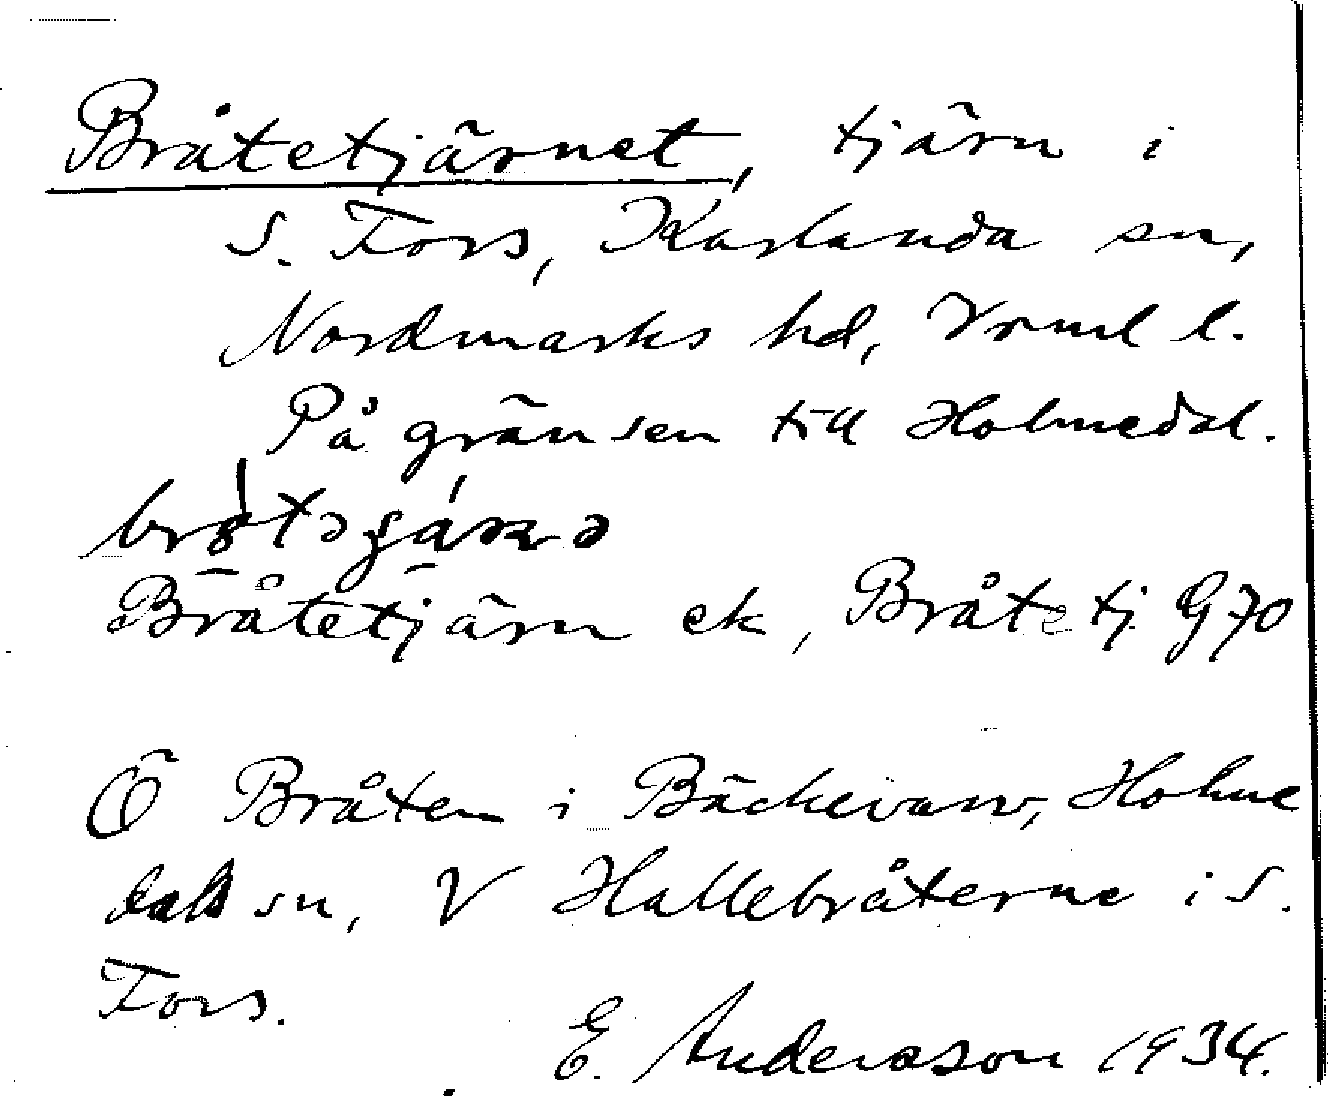 Bråtetjärnet, tjärn i
S. Fors, Karlanda sn,
Nordmarks hd, Vrml l.
På gränsen till Holmedal.
Bråtetjärn ek, Bråtetj G70
Ö Bråten i Bäckevarv, Holme
dals sn, V Hallebråterne i S.
Fors.
E. Andersson 1934.